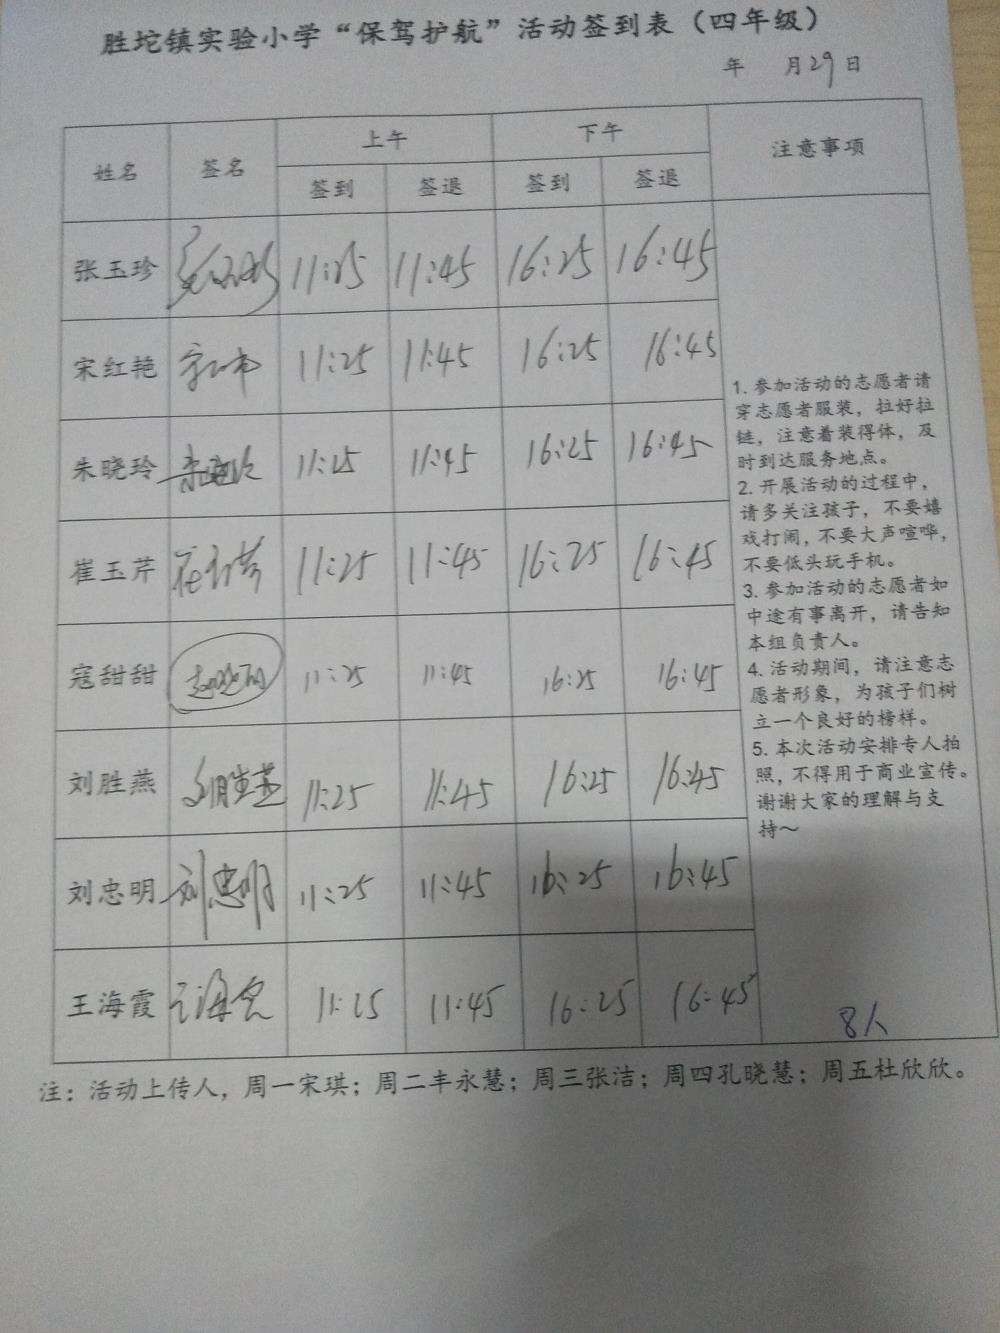 胜坨镇实验小学“保驾护航”活动签到表（四年级）
年 月29日
姓名 签名 上午 下午 注意事项
签到 签退 签到 签退
张玉珍 11:25 11:45 16:25 16:45
宋红艳 11:25 11:45 16:25 16:45
朱晓玲 11:25 11:45 16:25 16:45
崔玉芹 11:25 11:45 16:25 16:45
寇甜甜 11:25 11:45 16:25 16:45
刘胜燕 刘胜燕 11:25 11:45 16:25 16:45
刘忠明 刘忠明 11:25 11:45 16:25 16:45
王海霞 11:25 11:45 16:25 16:45
1. 参加活动的志愿者请
穿志愿者服装，拉好拉
链，注意着装得体，及
时到达服务地点。
2. 开展活动的过程中，
请多关注孩子，不要嬉
戏打闹，不要大声喧哗，
不要低头玩手机。
3. 参加活动的志愿者如
中途有事离开，请告知
本组负责人。
4. 活动期间，请注意志
愿者形象，为孩子们树
立一个良好的榜样。
5. 本次活动安排专人拍
照，不得用于商业宣传。
谢谢大家的理解与支
持～
8人
注：活动上传人，周一宋琪；周二丰永慧；周三张洁；周四孔晓慧；周五杜欣欣。